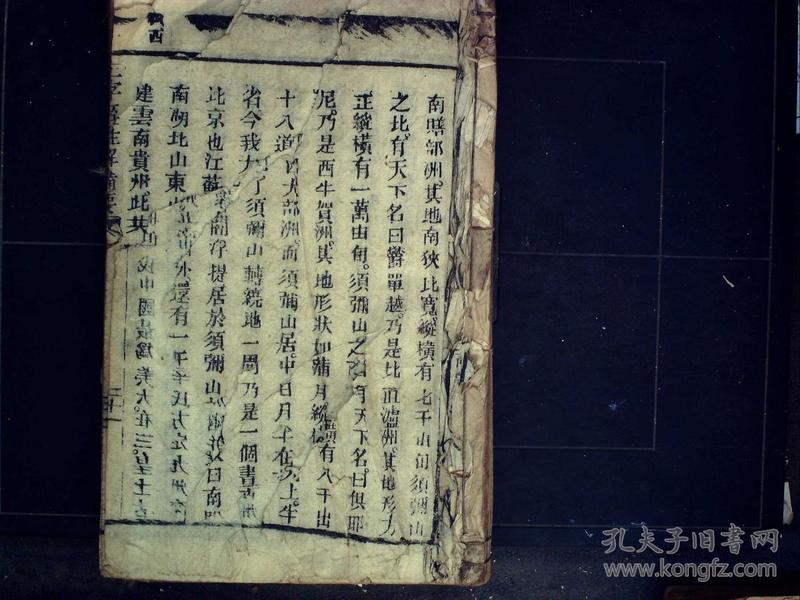 南贍部洲其地南狹北寬縱橫有七千由旬須彌山
之北有天下名曰鬱單越乃是北直瀘洲其地形方
正縱橫有一萬由旬須彌山之西有天下名曰俱耶
尼乃是西牛賀洲其地形狀如蒲月縱橫有八千出
十八道四大部洲而須彌山居中日月半在於上半
省今我大須彌山轉繞地一周乃是一個晝
北京也江蘇閻浮提居於須彌山曰南
南湖北山東外還有一方定九洲
建雲南貴州此共中國最為美大在三皇上古
三字經註解備要
孔夫子旧书网
www.kongfz.com